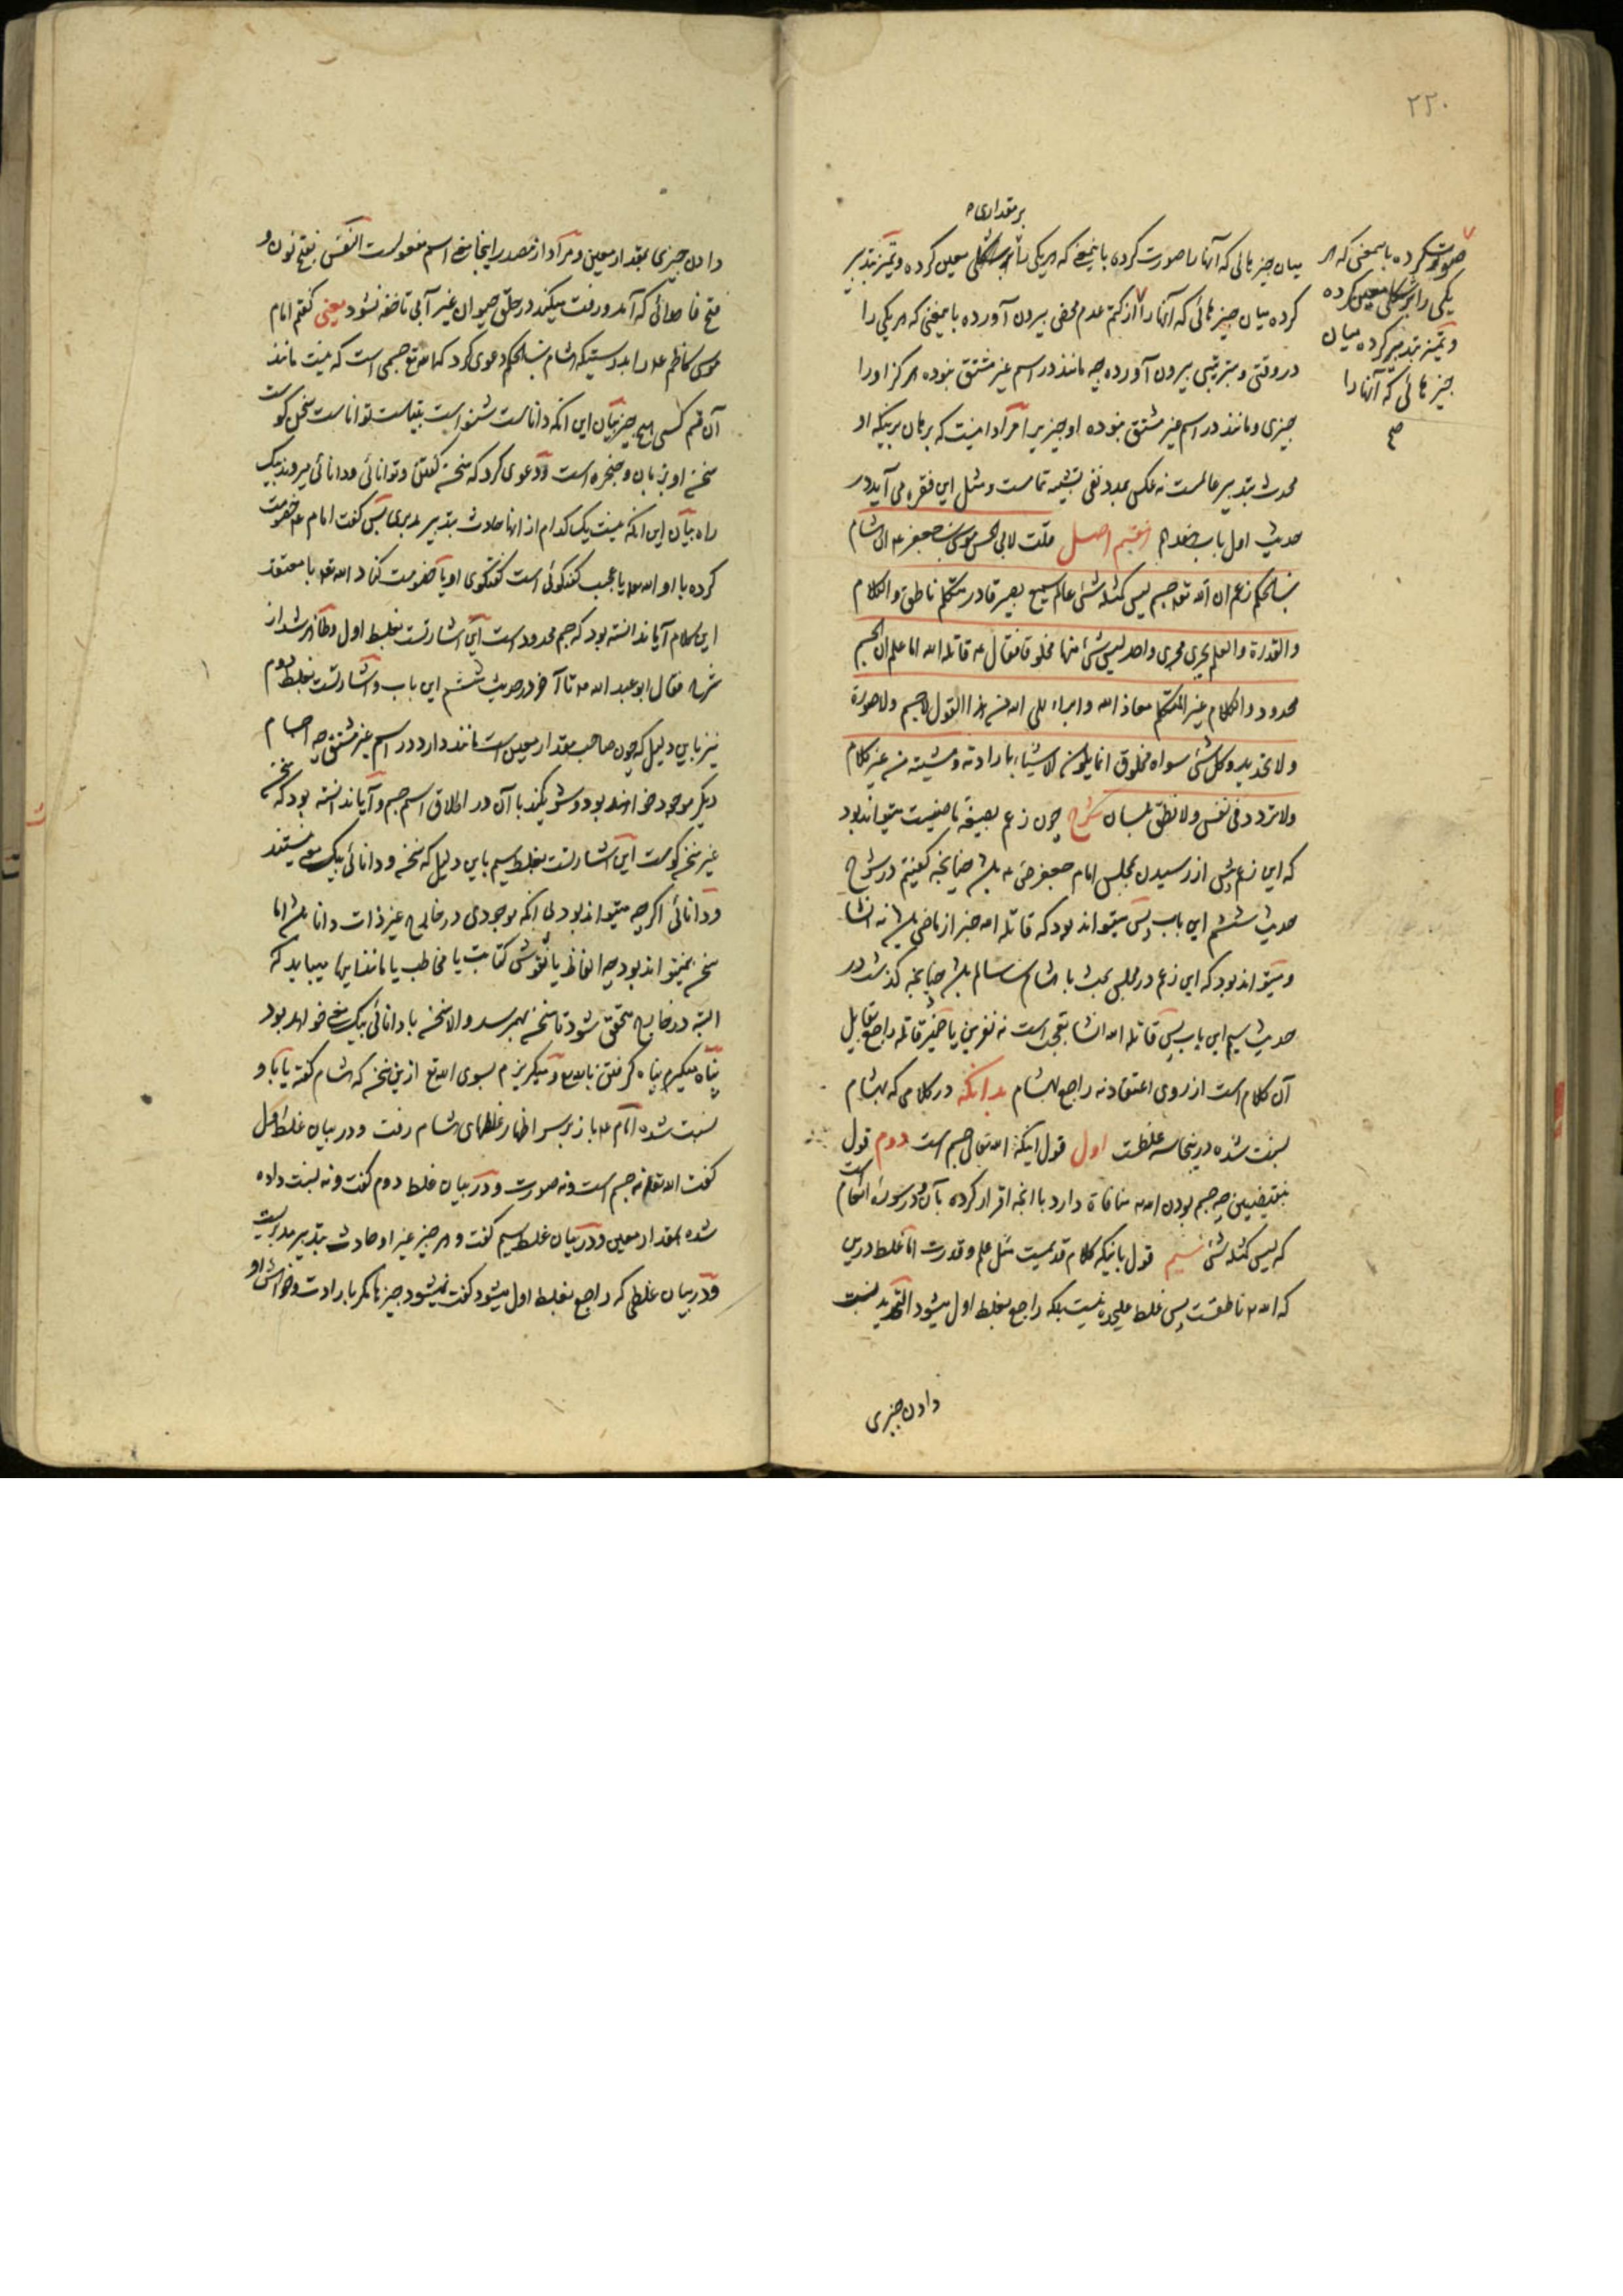 ۲۲۰
بر مقداری
میان چیز هائی که آنها را صورت کرده باینمعنی که هر یکی را بر شکلی معین کرده و تمیز بتدبیر
کرده میان چیز هائی که آنها را از کتم عدم محض بیرون آورده باینمعنی که هر یکی را
در وقتی و بترتیبی بیرون آورده چه مانند در اسم غیر مشتق نبوده هرگز او را
چیزی و مانند در اسم غیر مشتق نبوده او چیزیرا مراد اینست که برهان بر اینکه او
محدث بتدبیر عالمست نه عکس بعدد نفی تشبیه تمامست و مثل این فقره می آید در
حدیث اول باب هفدهم هفتم اصل قلت لابی الحسن موسی بن جعفر ع ان هشام
بن الحکم زعم ان الله تع جسم لیس کمثله شئ عالم سمیع بصیر قادر متکلم ناطق و الکلام
والقدرة والعلم یجری مجری واحد لیس شئ منها مخلوقا فقال ع قاتله الله اما علم ان الجسم
محدود والکلام غیر المتکلم معاذ الله وابراء الی الله من هذا القول لا جسم ولا صورة
ولا تحدید وکل شئ سواه مخلوق انما یکون الاشیاء بارادته ومشیته من غیر کلام
ولا تردد فی نفس ولا نطق بلسان شرح چون زعم بصیغه ماضیست میتواند بود
که این زعم پیش از رسیدن بمجلس امام جعفر ص ع باشد چنانچه گفتیم در شرح
حدیث ششم این باب پس میتواند بود که قاتله الله خبر از ماضی باشد نه انشا
و میتواند بود که این زعم در مجلس بحث با هشام بن سالم باشد چنانچه گذشت در
حدیث سیم این باب پس قاتله الله انشا تعجبست نه نفرین یا ضمیر قاتله راجع بقایل
آن کلام است از روی اعتقاد نه راجع بهشام بدانکه در کلامی که بهشام
نسبت شده در اینجا سه غلطست اول قول اینکه الله تعالی جسم است دوم قول
بنقیضین چه جسم بودن الله منافاة دارد با انچه اقرار کرده بآن در سوره انعام است
که لیس کمثله شئ سیم قول باینکه کلام قدیمست مثل علم و قدرت اما غلط در این
که الله ناطقست پس غلط علیحده نیست بلکه راجع بغلط اول میشود التحدید نسبت
دادن چیزی
صورت کرده باینمعنی که هر
یکی را بر شکلی معین کرده
و تمیز بتدبیر کرده میان
چیز هائی که آنها را
دادن چیزی بمقدار معین و مراد از مصدر اینجا معنی اسم مفعولست النفس بفتح نون و
فتح فا هوائی که آمد و رفت میکند در حلق حیوان غیر آبی تا خفه نشود یعنی گفتم امام
موسی کاظم ع را بدرستیکه هشام بن الحکم دعوی کرد که الله تع جسمی است که نیست مانند
آن قسم کسی هیچ چیز بیان این انکه داناست شنواست بیناست تواناست سخن گوست
سخن او بزبان و حنجره است و دعوی کرد که سخن گفتن و توانائی و دانائی میروند بیک
راه بیان این انکه نیست یک کدام از انها حادث بتدبیر مدبری پس گفت امام ع خصومت
کرده با او الله ع یا عجب گفتگوئی است گفتگوی او یا خصومت کناد الله تع با معتقد
این کلام آیا ندانسته بود که جسم محدود است این اشارتست بغلط اول و ظاهر شد از
شرح فقال ابو عبد الله ع تا آخر در حدیث ششم این باب و اشارتست بغلط دوم
نیز باین دلیل که چون صاحب مقدار معین است مانند دارد در اسم غیر مشتق چه اجسام
دیگر موجود خواهند بود و شریکند با آن در اطلاق اسم جسم و آیا ندانسته بود که سخن
غیر سخن گوست این اشارتست بغلط سیم باین دلیل که سخن و دانائی بیک معنی نیستند
و دانائی اگر چه میتواند بود بی انکه موجودی در خارج غیر ذات دانا باشد اما
سخن نمیتواند بود چه الفاظ یا نقوش کتابت یا مخاطب یا مانند اینها میباید که
البته در خارج متحقق شود تا سخن بهم رسد و الا سخن با دانائی بیک معنی خواهد بود
پناه میگیرم پناه گرفتن بالله تع و میگریزم بسوی الله تع از این سخن که هشام گفته یا باو
نسبت شده امام ع باز بر سر اظهار غلطهای هشام رفت و در بیان غلط اول
گفت الله تع نه جسم است و نه صورت و در بیان غلط دوم گفت و نه نسبت داده
شده بمقدار معین و در بیان غلط سیم گفت و هر چیز غیر او حادث بتدبیر مدبریست
و در بیان غلطی که راجع بغلط اول میشود گفت نمیشود چیزها مگر بارادت و خواهش او